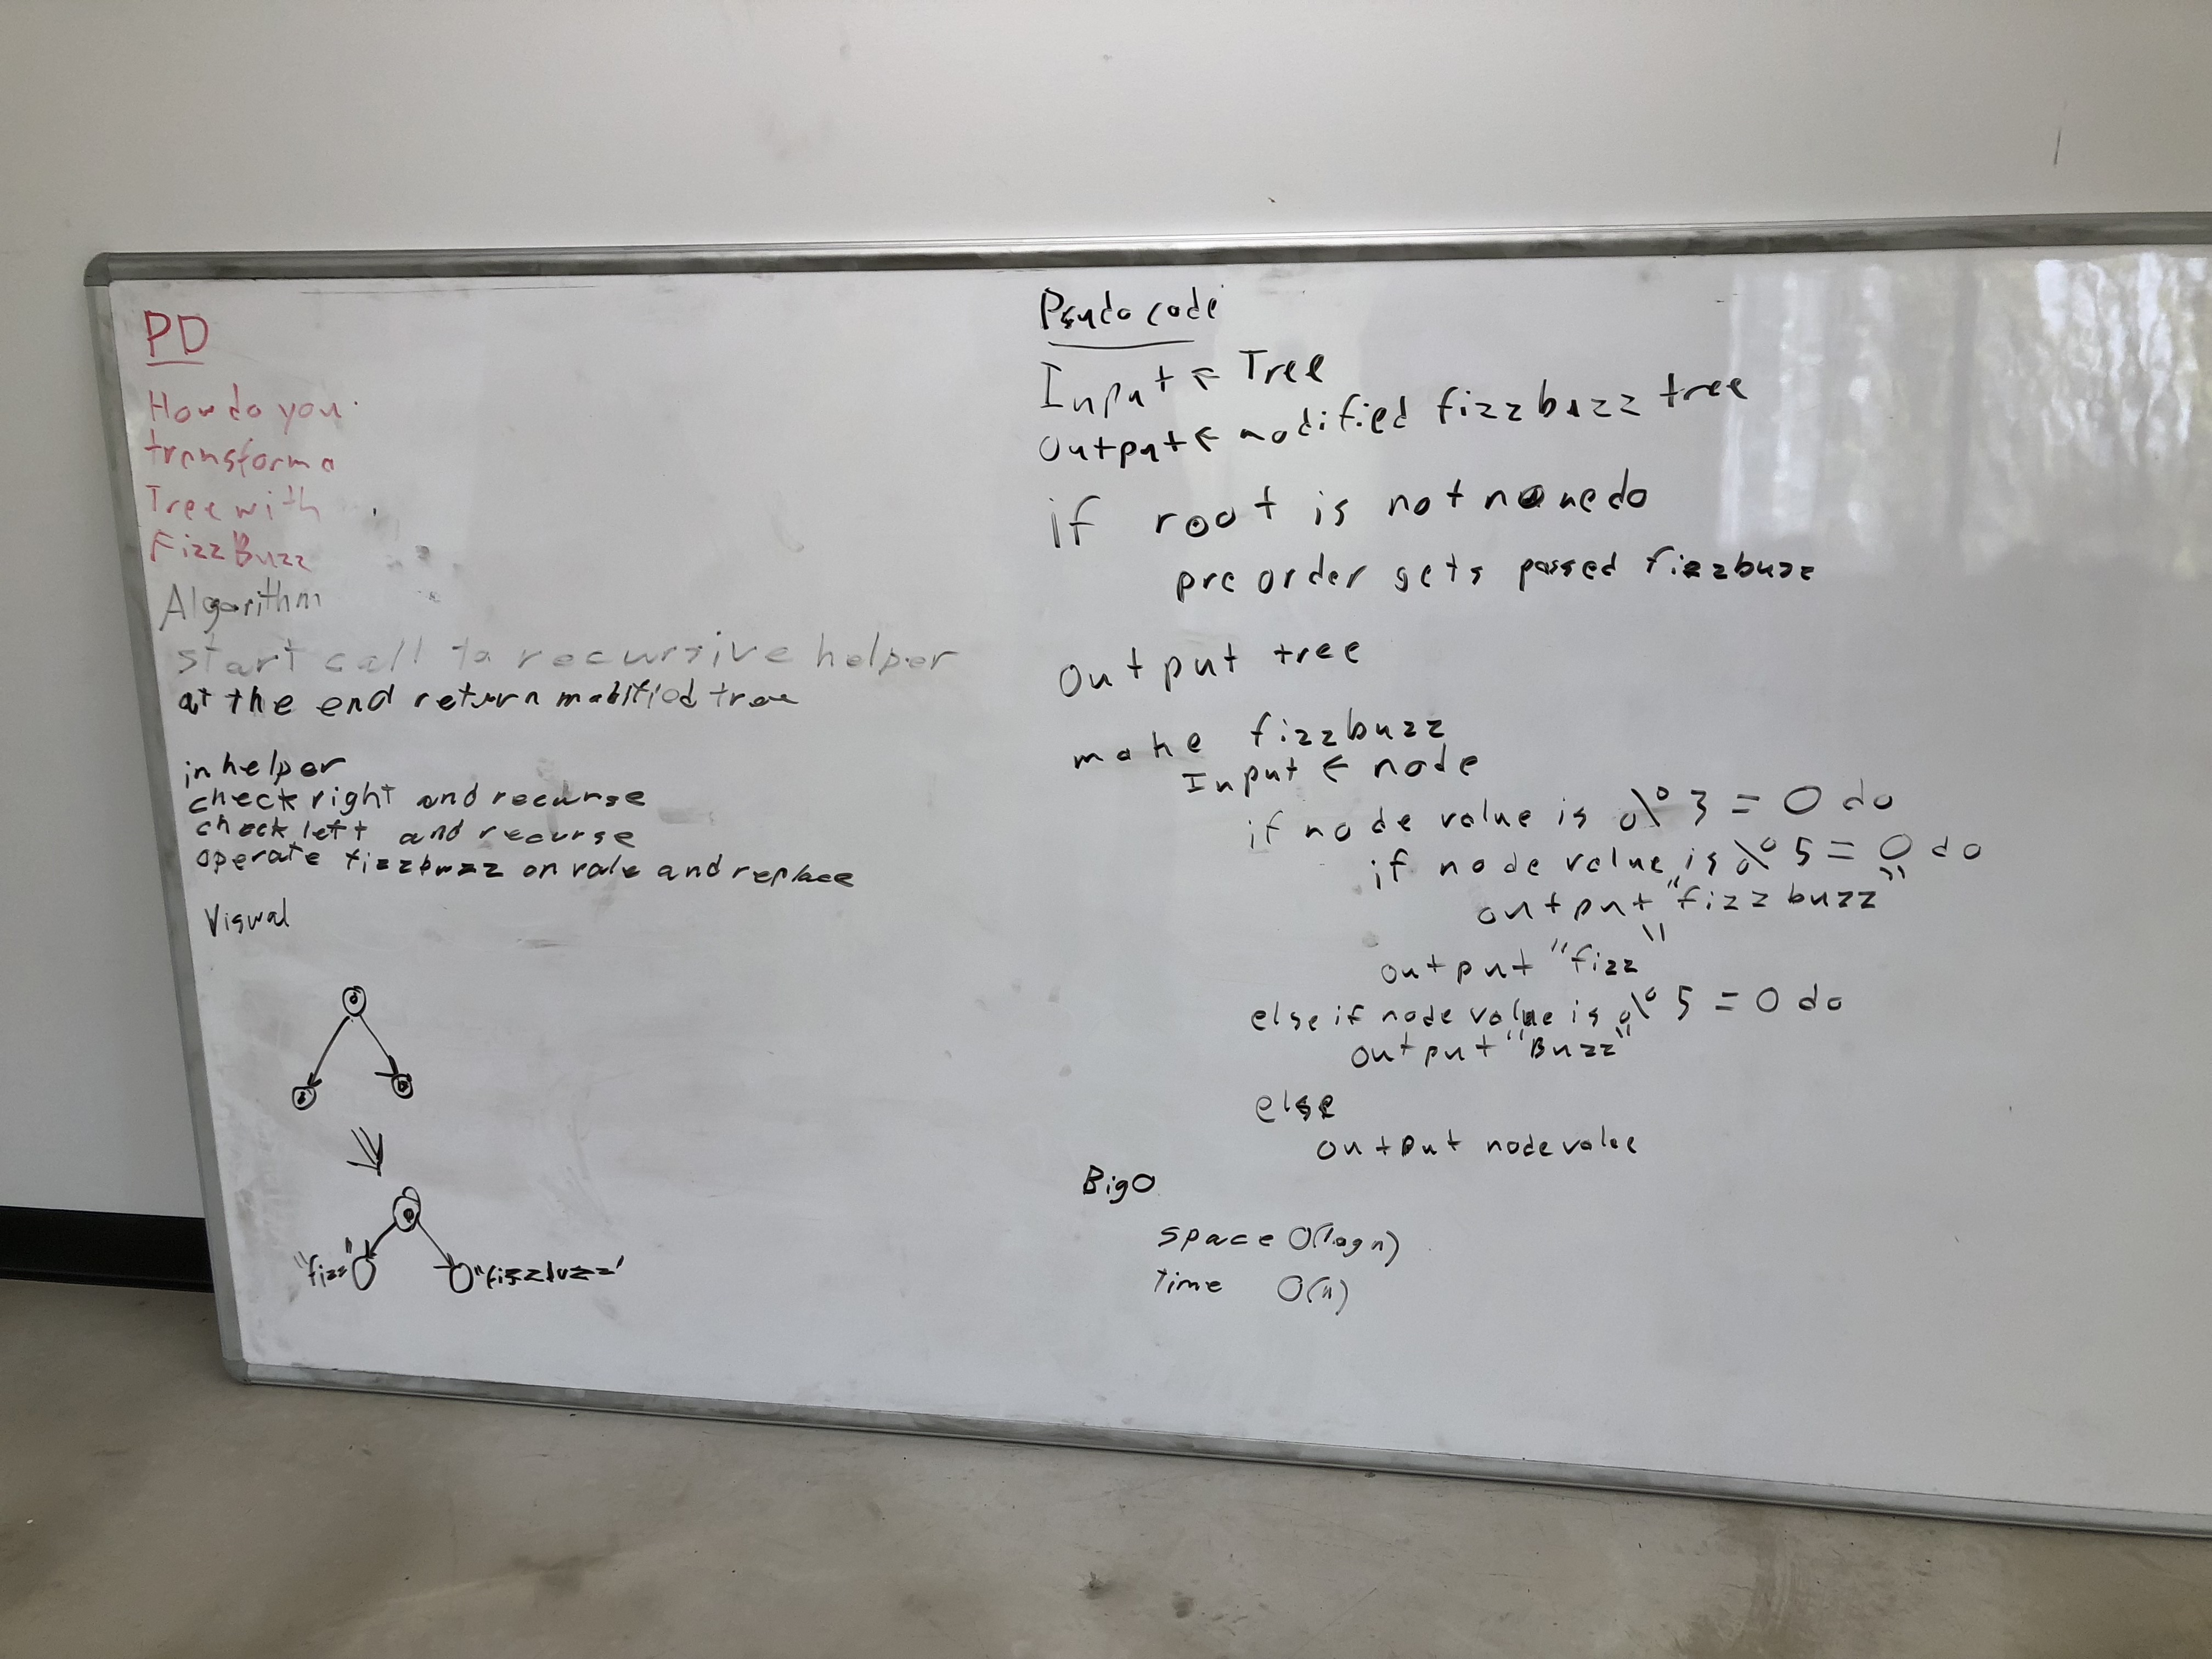 PD
How do you
transform a
Tree with
FizzBuzz
Algorithm
start call to recursive helper
at the end return modified tree
in helper
check right and recurse
check left and recurse
operate fizzbuzz on vale and replace
Visual
"fizz"
"fizzbuzz"
Psudo code
Input ← Tree
Output ← modified fizzbuzz tree
if root is not none do
pre order gets passed fizzbuzz
Output tree
make fizzbuzz
Input ← node
if node value is % 3 = 0 do
if node value is % 5 = 0 do
output "fizzbuzz"
output "fizz"
else if node value is % 5 = 0 do
output "Buzz"
else
output node value
Big O
space O(log n)
time O(n)